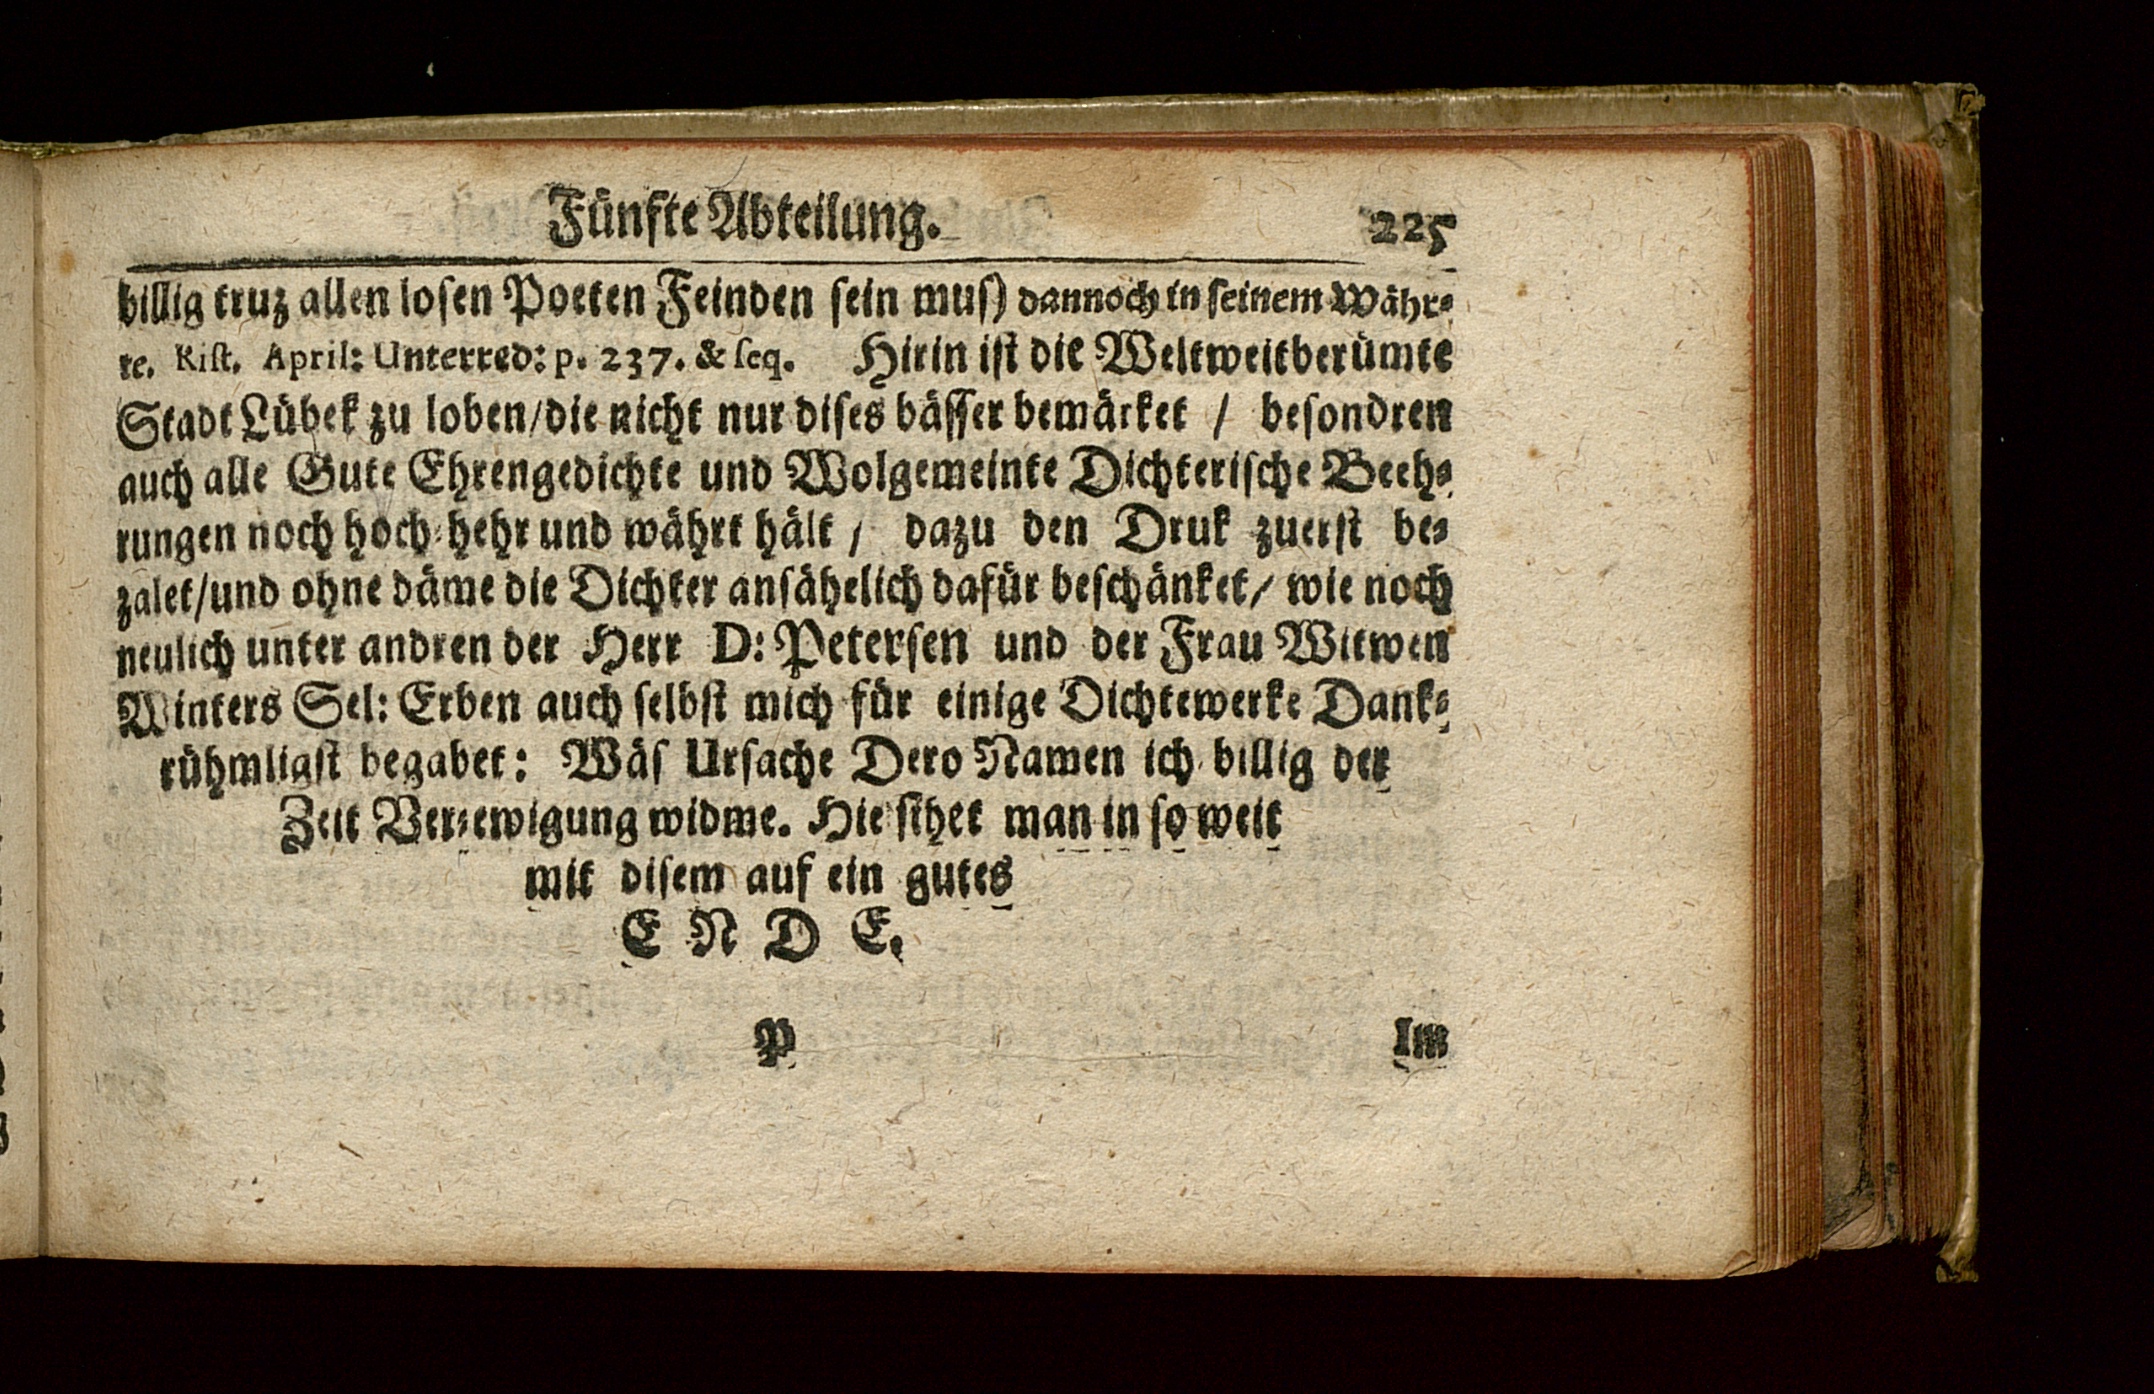 Fünfte Abteilung. 225
billig truz allen losen Poeten Feinden sein mus) dannoch in seinem Währ-
te. Rist. April: Unterred: p. 237. & seq. Hirin ist die Weltweitberümte
Stadt Lübek zu loben/die nicht nur dises bässer bemärket / besondren
auch alle Gute Ehrengedichte und Wolgemeinte Dichterische Beeh-
rungen noch hoch-hehr und währt hält / dazu den Druk zuerst be-
zalet/und ohne däme die Dichter ansähelich dafür beschänket/ wie noch
neulich unter andren der Herr D: Petersen und der Frau Witwen
Winters Sel: Erben auch selbst mich für einige Dichtewerke Dank-
rühmligst begabet: Wäs Ursache Dero Namen ich billig der
Zeit Ver-ewigung widme. Hie sihet man in so weit
mit disem auf ein gutes
E N D E.
P Im